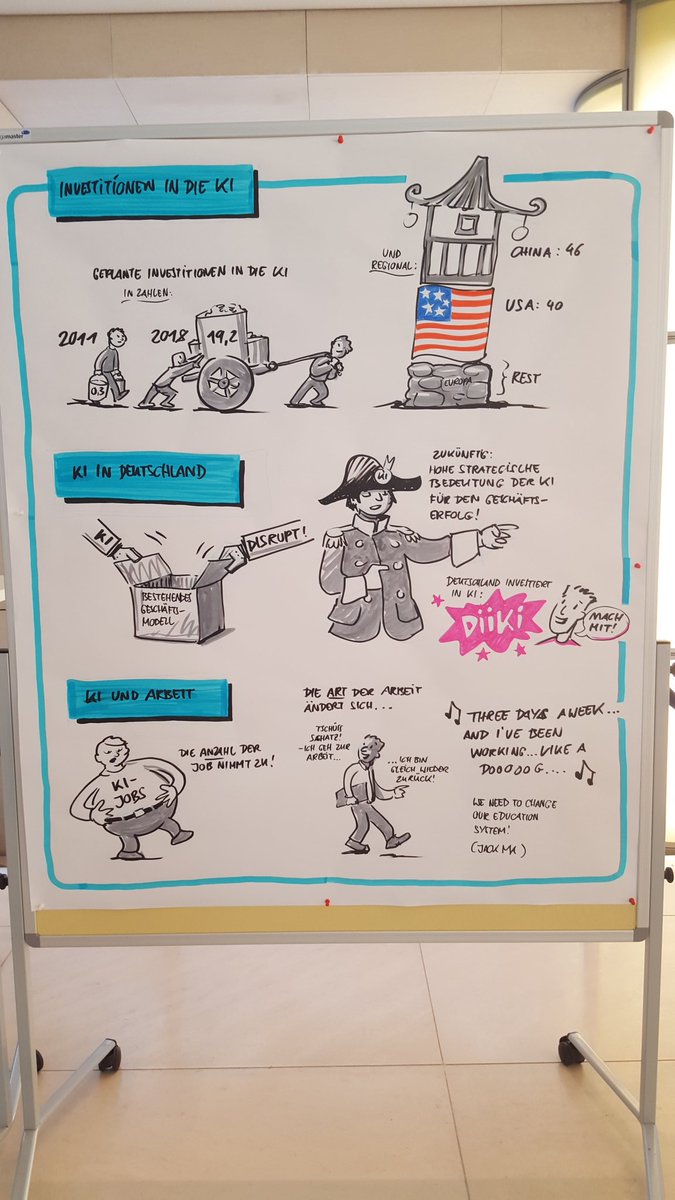 INVESTITIONEN IN DIE KI
GEPLANTE INVESTITIONEN IN DIE KI
IN ZAHLEN:
2011
0.3
2018
19,2
UND
REGIONAL:
CHINA: 46
USA: 40
EUROPA
REST
KI IN DEUTSCHLAND
KI
DISRUPT!
BESTEHENDES
GESCHÄFTS-
MODELL
KI
ZUKÜNFTIG:
HOHE STRATEGISCHE
BEDEUTUNG DER KI
FÜR DEN GESCHÄFTS-
ERFOLG!
DEUTSCHLAND INVESTIERT
IN KI:
DüKi
MACH
MIT!
KI UND ARBEIT
DIE ANZAHL DER
JOB NIMMT ZU!
KI-
JOBS
DIE ART DER ARBEIT
ÄNDERT SICH...
TSCHÜSS
SCHATZ!
-ICH GEH ZUR
ARBEIT...
...ICH BIN
GLEICH WIEDER
ZURÜCK!
THREE DAYS A WEEK...
AND I'VE BEEN
WORKING...LIKE A
DOOOOG....
WE NEED TO CHANGE
OUR EDUCATION
SYSTEM!
(JACK MA)